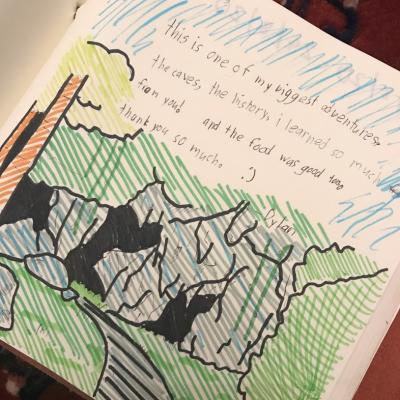 this is one of my biggest adventures.
the caves, the history. i learned so much
from you! and the food was good too.
thank you so much. :)
Dylan